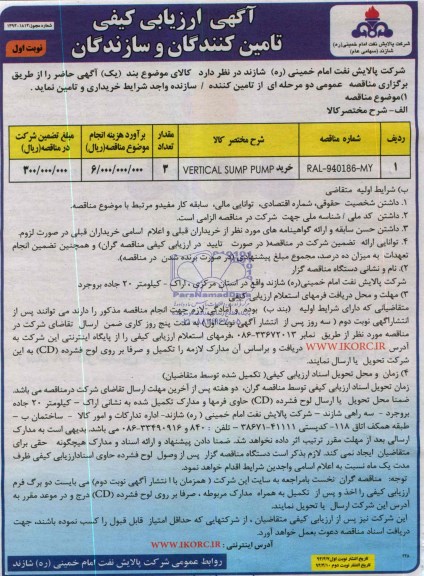 آگهی ارزیابی کیفی
تامین کنندگان و سازندگان
نوبت اول
شرکت پالایش نفت امام خمینی(ره)
شازند (سهامی عام)
شرکت پالایش نفت امام خمینی (ره) شازند در نظر دارد کالای موضوع بند (یک) آگهی حاضر را از طریق
برگزاری مناقصه عمومی دو مرحله ای از تامین کننده / سازنده واجد شرایط خریداری و تامین نماید .
۱)موضوع مناقصه
الف- شرح مختصر کالا
ردیف شماره مناقصه شرح مختصر کالا مقدار تعداد برآورد هزینه انجام موضوع مناقصه(ریال) مبلغ تضمین شرکت در مناقصه(ریال)
۱ RAL-940186-MY خرید VERTICAL SUMP PUMP ۳ ۶/۰۰۰/۰۰۰/۰۰۰ ۳۰۰/۰۰۰/۰۰۰
ب) شرایط اولیه متقاضی
۱. داشتن شخصیت حقوقی، شماره اقتصادی، توانایی مالی، سابقه کار مفیدو مرتبط با موضوع مناقصه.
۲. داشتن کد ملی / شناسه ملی جهت شرکت در مناقصه الزامی است.
۳. داشتن حسن سابقه و ارائه گواهینامه های مورد نظر از خریداران قبلی و اعلام اسامی خریداران قبلی در صورت لزوم.
۴. توانایی ارائه تضمین شرکت در مناقصه( در صورت تایید در ارزیابی کیفی مناقصه گران) و همچنین تضمین انجام
تعهدات به میزان ده درصد، مجموع مبلغ پیشنهادی(در صورت برنده شدن در مناقصه).
۲) نام و نشانی دستگاه مناقصه گزار
شرکت پالایش نفت امام خمینی(ره) شازند واقع در استان مرکزی ، اراک - کیلومتر ۲۰ جاده بروجرد
۳) مهلت و محل دریافت فرمهای استعلام ارزیابی کیفی
متقاضیانی که دارای شرایط اولیه (بند ب) بوده و آمادگی لازم جهت انجام مناقصه مذکور را دارند می توانند پس از
انتشارآگهی نوبت دوم ( سه روز پس از انتشار آگهی نوبت اول) به مدت پنج روز کاری ضمن ارسال تقاضای شرکت در
مناقصه مورد نظر از طریق نمابر ۳۳۶۷۲۰۱۳-۰۸۶ ،فرمهای استعلام ارزیابی کیفی را از پایگاه اینترنتی این شرکت به
آدرس WWW.IKORC.IR دریافت و براساس آن مدارک لازمه را تکمیل و صرفا بر روی لوح فشرده (CD) به این
شرکت تحویل یا ارسال نمایند.
۴) زمان و محل تحویل اسناد ارزیابی کیفی( تکمیل شده توسط متقاضیان)
زمان تحویل اسناد ارزیابی کیفی توسط مناقصه گران، دو هفته پس از آخرین مهلت ارسال تقاضای شرکت درمناقصه می باشد.
ضمنا محل تحویل یا ارسال لوح فشرده (CD) حاوی فرمها و مدارک تکمیل شده به نشانی اراک - کیلومتر ۲۰ جاده
بروجرد - سه راهی شازند - شرکت پالایش نفت امام خمینی ( ره) شازند- اداره تدارکات و امور کالا - ساختمان ب -
طبقه همکف اتاق ۱۱۸- کدپستی ۴۱۱۱۱-۳۸۶۷۱ - تلفن : ۸۴۰ و ۳۳۴۹۰۹۱۶-۰۸۶ می باشد. بدیهی است به مدارک
ارسالی بعد از مهلت مقرر ترتیب اثر داده نخواهد شد. ضمنا دادن پیشنهاد و ارائه اسناد و مدارک هیچگونه حقی برای
متقاضیان ایجاد نمی کند. لازم بذکر است دستگاه مناقصه گزار پس از وصول لوح فشرده حاوی اسنادارزیابی کیفی ظرف
مدت یک ماه نسبت به اعلام اسامی واجدین شرایط اقدام خواهد نمود.
توجه: مناقصه گران نخست بامراجعه به سایت این شرکت ( همزمان با انتشار آگهی نوبت دوم) می بایست دو برگ فرم
ارزیابی کیفی را اخذ و پس از تکمیل به همراه مدارک مربوطه ، صرفا بر روی لوح فشرده (CD) درج و در موعد مقرر به
آدرس این شرکت ارسال یا تحویل نمایند.
این شرکت نیز پس از ارزیابی کیفی متقاضیان ، از شرکتهایی که حداقل امتیاز قابل قبول را کسب نموده باشند، جهت
دریافت اسناد مناقصه دعوت بعمل خواهد آورد.
آدرس اینترنتی : WWW.IKORC.IR
روابط عمومی شرکت پالایش نفت امام خمینی (ره) شازند